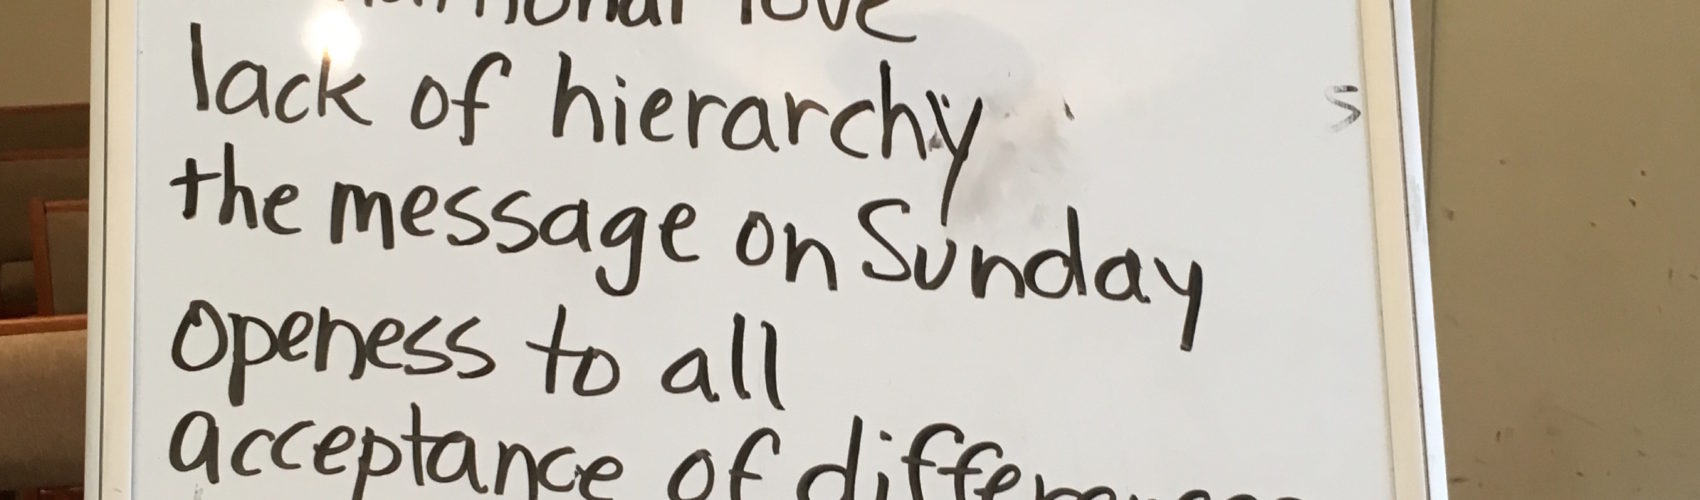 love
lack of hierarchy
s
the message on Sunday
Openess to all
acceptance of